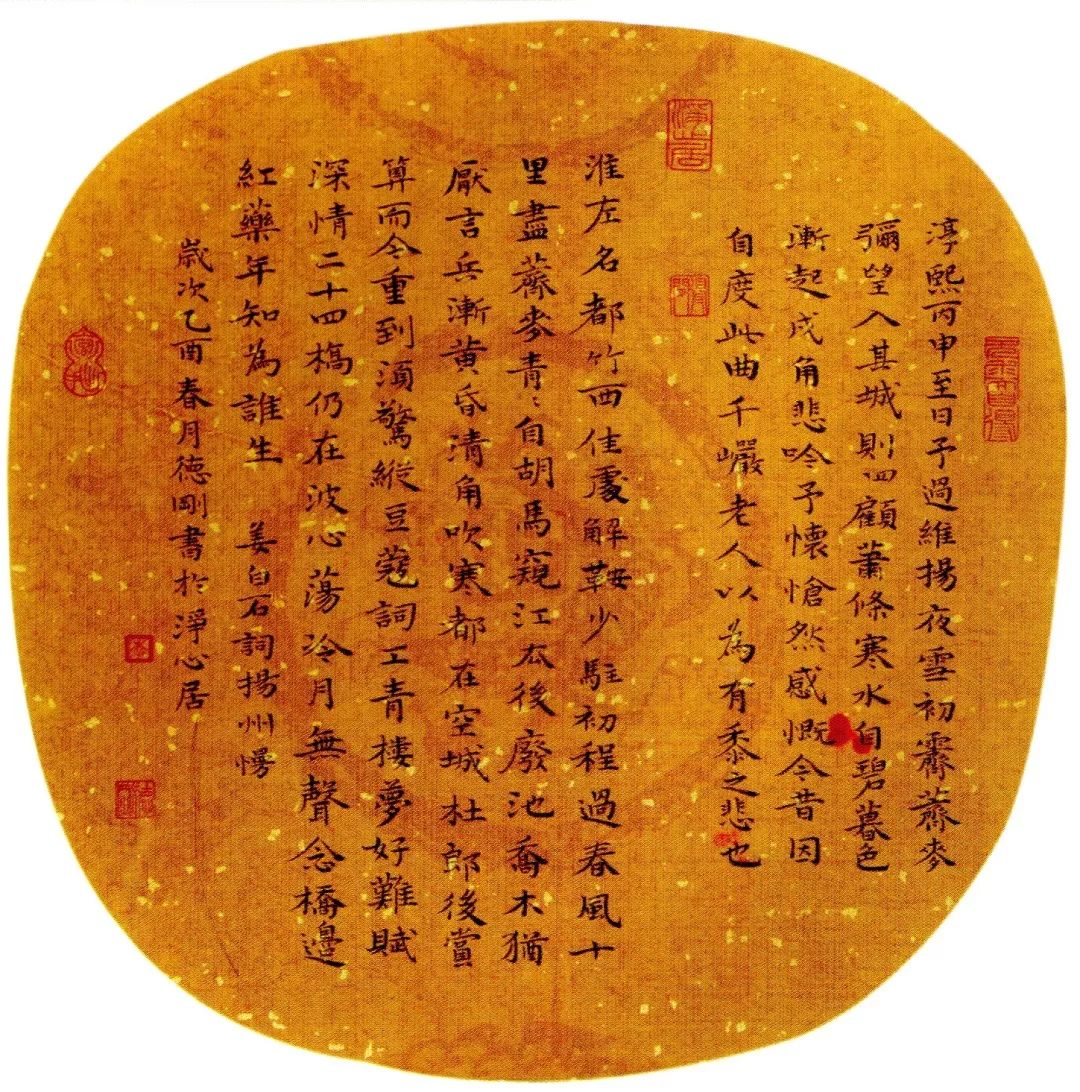 淳熙丙申至日予過維揚夜雪初霽薺麥
彌望入其城則四顧蕭條寒水自碧暮色
漸起戍角悲吟予懷愴然感慨今昔因
自度此曲千巖老人以為有黍之悲也
淮左名都竹西佳處解鞍少駐初程過春風十
里盡薺麥青〻自胡馬窺江去後廢池喬木猶
厭言兵漸黃昏清角吹寒都在空城杜郎後賞
算而今重到須驚縱豆蔻詞工青樓夢好難賦
深情二十四橋仍在波心蕩冷月無聲念橋邊
紅藥年知為誰生 姜白石詞揚州慢
歲次乙酉春月德剛書於淨心居
淨心居